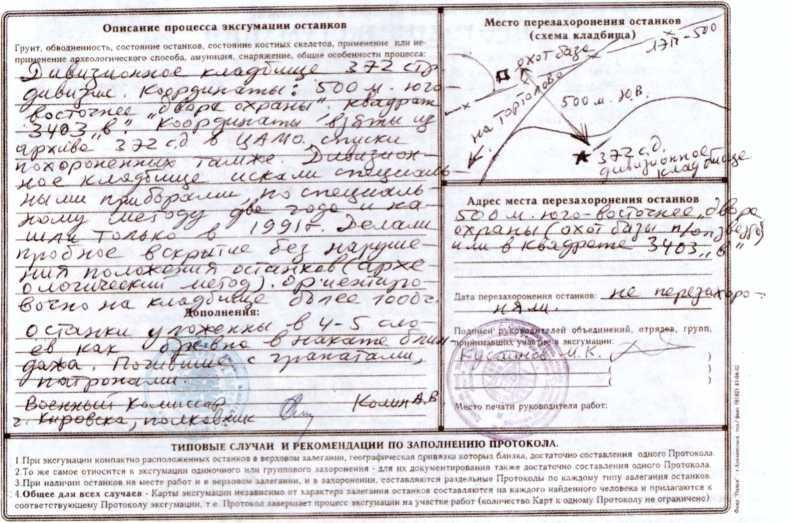 Описание процесса эксгумации останков
Грунт, обводненность, состояние останков, состояние костных скелетов, применение или не-
применение археологического способа, амуниция, снаряжение, общие особенности процесса:
Дивизионное кладбище 372 стр.
дивизии. Координаты: 500 м. юго-
восточнее "двора охраны". квадрат
3403 „в". Координаты взяти из
архива 372 с.д в ЦАМО. списки
похороненных тамже. Дивизион-
ное кладбище искали специаль-
ными приборами, по специаль-
ному методу два года и на-
шли только в 1991г. Делали
пробное вскрытие без наруше-
ния положения останков (архе-
ологический метод). Ориентиро-
вочно на кладбище более 1000ч.
Дополнения:
останки уложенны в 4-5 сло-
ев как бревно в накате блин-
дажа. Погибшие с гранатами,
патронами.
Военный Комиссар Колин А.В
г. Кировска, полковник
Место перезахоронения останков
(схема кладбища)
охот база
на Тортолово
500 м. Ю.В.
372 с.д.
дивизионное
кладбище
Адрес места перезахоронения останков
500 м. юго-восточнее двора
охраны (охот базы
или в квадрате 3403 „в"
Дата перезахоронения останков: не перезахоро-
нял.
Подписи руководителей объединений, отрядов, групп,
принимавших участие в эксгумации:
И.К.
Место печати руководителя работ:
ТИПОВЫЕ СЛУЧАИ И РЕКОМЕНДАЦИИ ПО ЗАПОЛНЕНИЮ ПРОТОКОЛА.
1.При эксгумации компактно расположенных останков в верховом залегании, географическая привязка которых близка, достаточно составления одного Протокола.
2.То же самое относится к эксгумации одиночного или группового захоронения - для их документирования также достаточно составления одного Протокола.
3.При наличии останков на месте работ и в верховом залегании, и в захоронении, составляются раздельные Протоколы по каждому типу залегания останков.
4.Общее для всех случаев - Карты эксгумации независимо от характера залегания останков составляются на каждого найденного человека и прилагаются к
соответствующему Протоколу эксгумации, т.е. Протокол завершает процесс эксгумации на участке работ (количество Карт к одному Протоколу не ограничено)